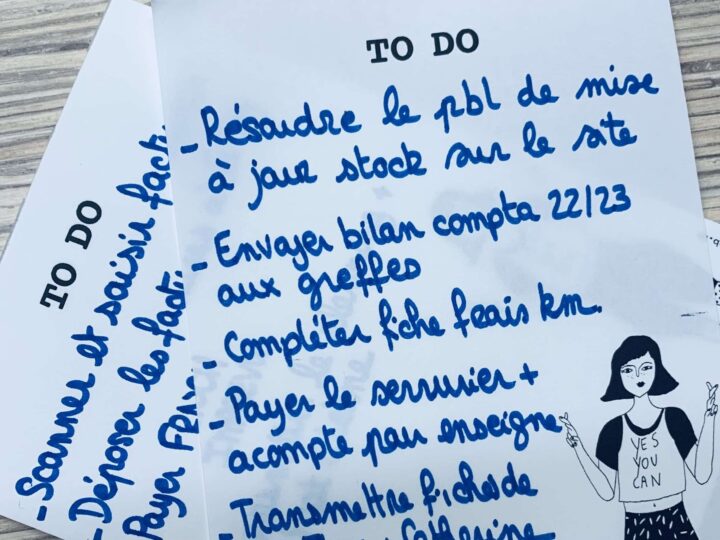 TO DO
- Résoudre le pbl de mise
à jour stock sur le site
- Envoyer bilan compta 22/23
aux greffes
- Compléter fiche frais km.
- Payer le serrurier +
acompte pour enseigne
- Transmettre fiches de
Catherine
YES
YOU
CAN
TO DO
- Scanner et saisir fact
- Déposer les fact
Payer